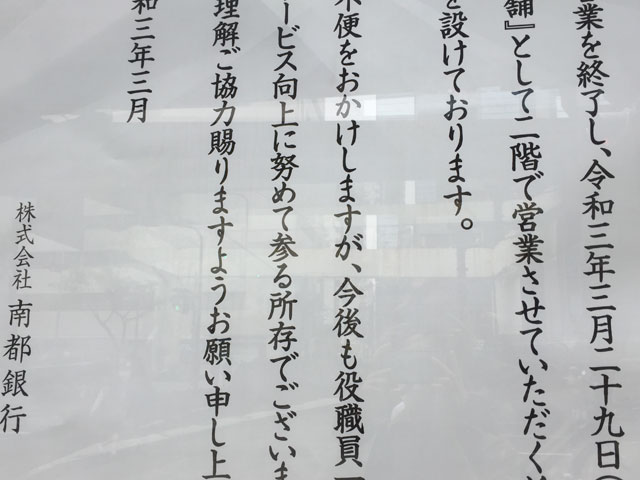 業を終了し、令和三年三月二十九日（
舗』として二階で営業させていただく
を設けております。
不便をおかけしますが、今後も役職員一
ービス向上に努めて参る所存でございま
理解ご協力賜りますようお願い申し上
和三年三月
株式会社 南都銀行